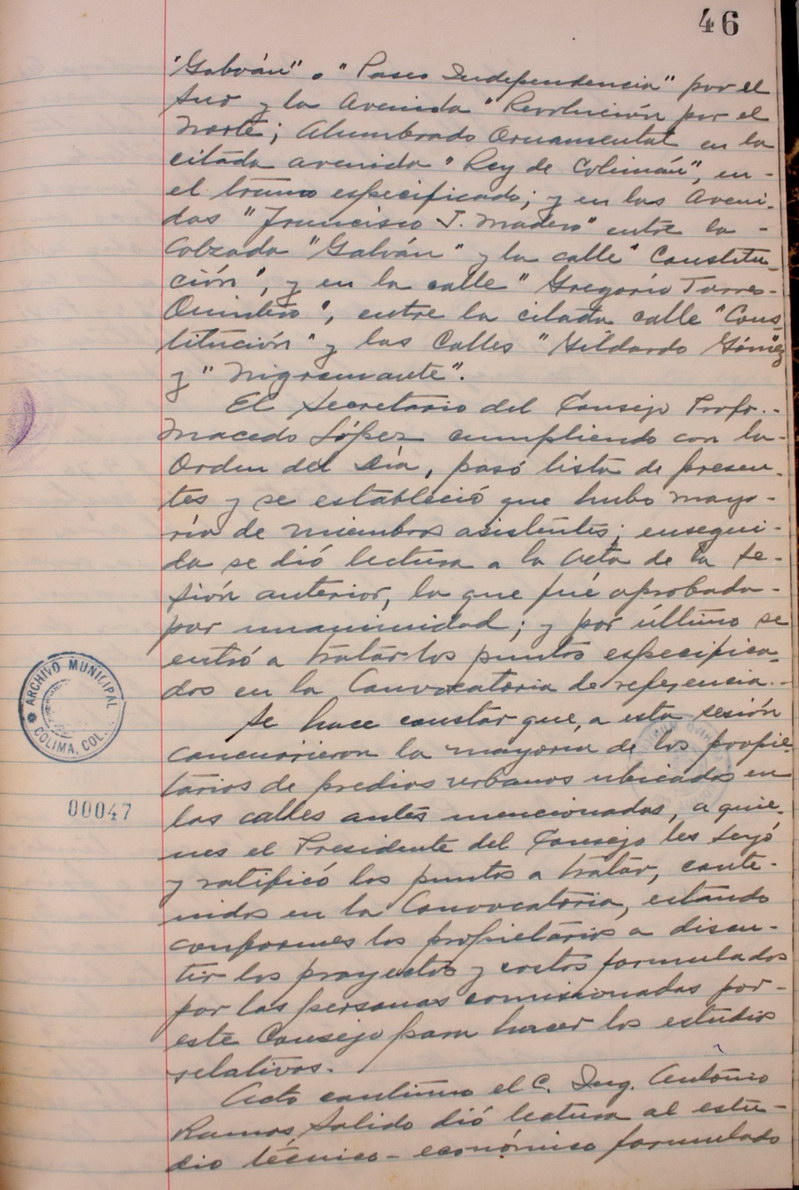 46
"Galván" o "Paseo Independencia" por el
Sur y la Avenida "Revolución por el
Norte; Alumbrado Ornamental en la
citada avenida "Rey de Colimán", en-
el tramo especificado; y en las Aveni-
das "Francisco I. Madero" entre la -
Calzada "Galván" y la calle "Constitu-
ción", y en la calle "Gregorio Torres-
Quintero", entre la citada calle "Cons-
titución" y las Calles "Gildardo Gómez
y "Nigromante".
El Secretario del Consejo Profr.-
Macedo López cumpliendo con la-
Orden del Día, pasó lista de presen-
tes y se estableció que hubo mayo-
ría de miembros asistentes; ensegui-
da se dió lectura a la Acta de la Se-
sión anterior, la que fué aprobada-
por unanimidad; y por último se
entró a tratar los puntos especifica-
dos en la Convocatoria de referencia.-
Se hace constar que, a esta sesión
concurrieron la mayoría de los propie-
tarios de predios urbanos ubicados en
las calles antes mencionadas, a quie-
nes el Presidente del Consejo les leyó
y ratificó los puntos a tratar, conte-
nidos en la Convocatoria, estando
conformes los propietarios a discu-
tir los proyectos y costos formulados
por las personas comisionadas por-
este Consejo para hacer los estudios
relativos.
Acto continuo el C. Ing. Antonio
Ramos Salido dió lectura al estu-
dio técnico-económico formulado
ARCHIVO MUNICIPAL
COLIMA, COL.
00047